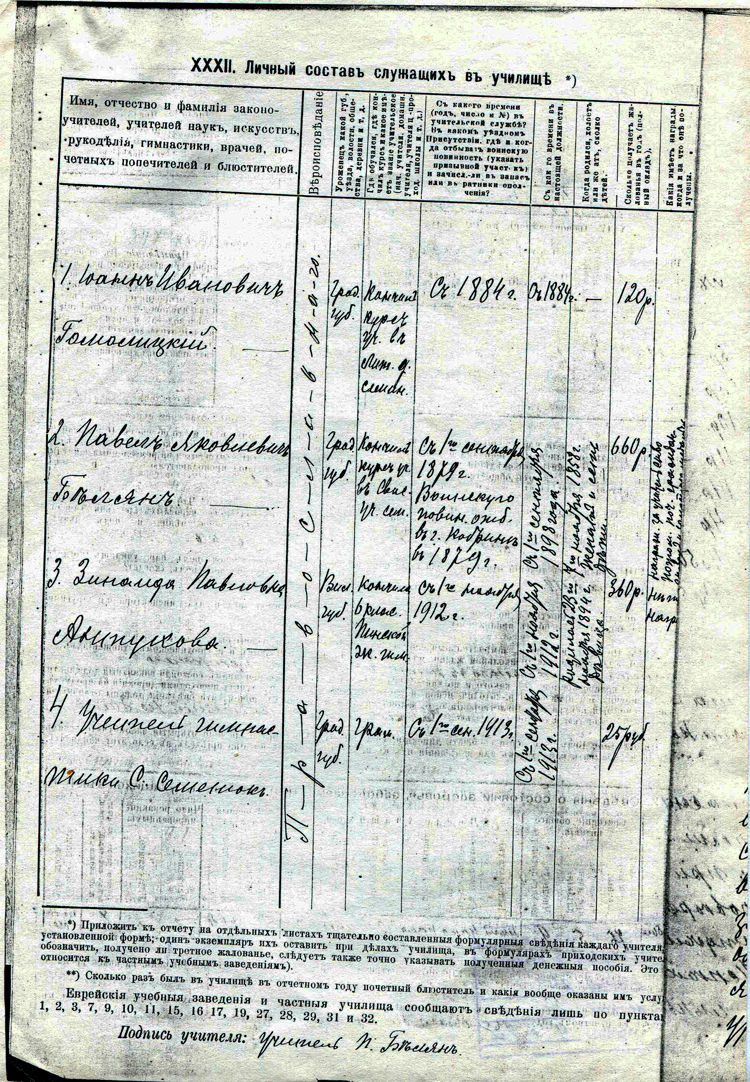 XXXII. Личный составъ служащихъ въ училищѣ *)
Имя, отчество и фамилія законо-
учителей, учителей наукъ, искусствъ,
рукодѣлія, гимнастики, врачей, по-
четныхъ попечителей и блюстителей.
Вѣроисповѣданіе
Уроженецъ какой губ.,
уѣзда, волости, обще-
ства, деревни и т. д.
Гдѣ обучался, гдѣ кон-
чилъ курсъ и какое имѣ-
етъ званіе учительское
(нач. учителя, домашн.
учителя, учителя ц.-про-
ход. школы и т. д.)
Съ какого времени
(годъ, число и №) въ
учительской службѣ?
Въ какомъ уѣздномъ
Присутствіи, гдѣ и ког-
да отбывалъ воинскую
повинность (указать
призывной участ-къ)
и зачисл-ли въ запасъ
или въ ратники опол-
ченія?
Съ како го времени въ
настоящей должности.
Когда родился, холостъ
или же атъ, сколько
дѣтей.
Сколько получаетъ жа-
лованья въ годъ (пол-
ный окладъ).
Какія имѣетъ награды
когда и за что онѣ по-
лучены.
П-р-а-в-о-с-л-а-в-н-а-го.
1. Іоаннъ Ивановичъ
Гомолицкій.
Грод.
губ.
Кончилъ
курсъ
уч. въ
Лит. д.
семин.
Съ 1884 г.
Съ 1884 г.
—
120 р.
2. Павелъ Яковлевичъ
Бѣлянъ
Грод.
губ.
Кончилъ
курсъ уч.
въ Свис.
уч. сем.
Съ 1го сентября
1879 г.
Воинскую
повин. отб.
въ г. Кобринѣ
въ 1879 г.
Съ 1го сентября
1898 года
1го ноября 1858 г.
женатъ и
660 р.
3. Зинаида Павловна
Вил.
губ.
кончила
6 клас.
Пинской
жен. гим.
Съ 1го ноября
1912 г.
Съ 1го ноября
1912 г.
ноября 1894 г.
дѣвица
360 р.
нѣтъ
наград
4. Учитель гимнас-
тики С. Семенюкъ.
Грод.
губ.
грам.
Съ 1го сен. 1913 г.
1913 г.
25 руб.
*) Приложить къ отчету на отдѣльныхъ листахъ тщательно составленныя формулярныя свѣдѣнія каждаго учителя,
установленной формѣ; одинъ экземпляръ ихъ оставить при дѣлахъ училища, въ формулярахъ приходскихъ учите
обозначить, получено ли третное жалованье, слѣдуетъ также точно указывать полученныя денежныя пособія. Это
относится къ частнымъ учебнымъ заведеніямъ).
**) Сколько разъ былъ въ училищѣ въ отчетномъ году почетный блюститель и какія вообще оказаны имъ услу
Еврейскія учебныя заведенія и частныя училища сообщаютъ свѣдѣнія лишь по пункта
1, 2, 3, 7, 9, 10, 11, 15, 16 17, 19, 27, 28, 29, 31 и 32.
Подпись учителя: Учитель П. Бѣлянъ.